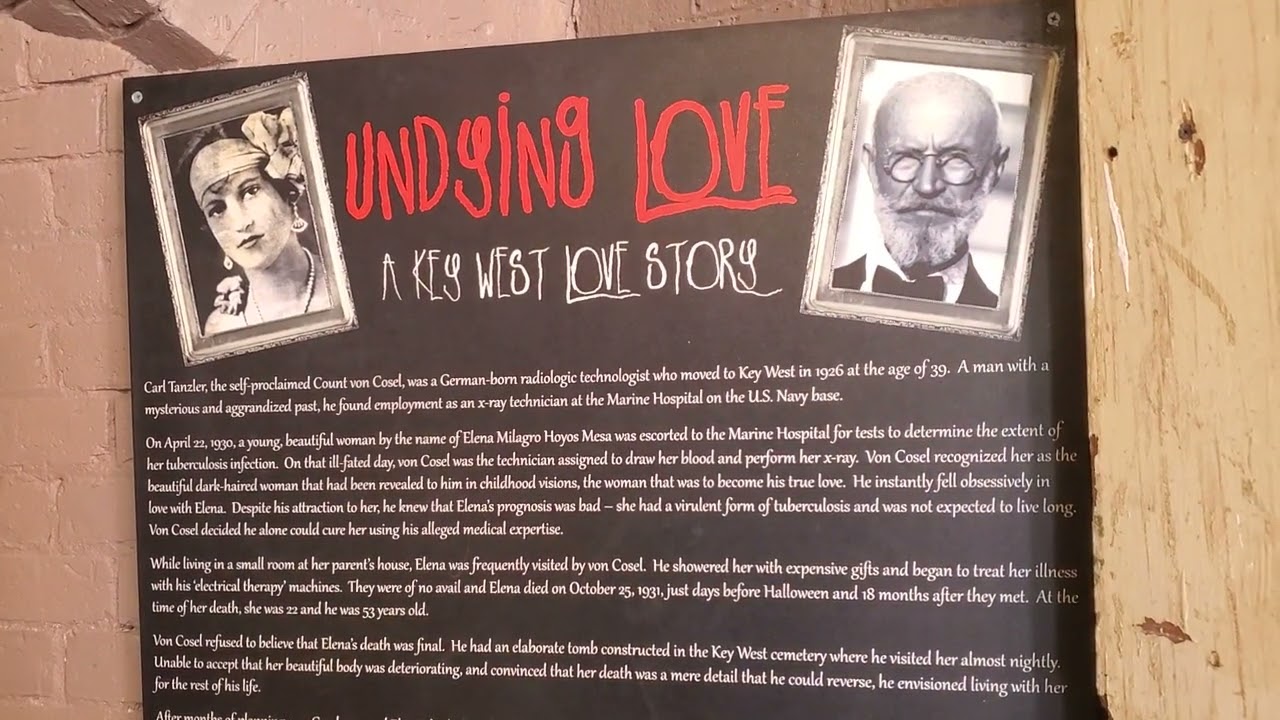 UNDYING LOVE
A KEY WEST LOVE STORY
Carl Tanzler, the self-proclaimed Count von Cosel, was a German-born radiologic technologist who moved to Key West in 1926 at the age of 39. A man with a
mysterious and aggrandized past, he found employment as an x-ray technician at the Marine Hospital on the U.S. Navy base.
On April 22, 1930, a young, beautiful woman by the name of Elena Milagro Hoyos Mesa was escorted to the Marine Hospital for tests to determine the extent of
her tuberculosis infection. On that ill-fated day, von Cosel was the technician assigned to draw her blood and perform her x-ray. Von Cosel recognized her as the
beautiful dark-haired woman that had been revealed to him in childhood visions, the woman that was to become his true love. He instantly fell obsessively in
love with Elena. Despite his attraction to her, he knew that Elena's prognosis was bad – she had a virulent form of tuberculosis and was not expected to live long.
Von Cosel decided he alone could cure her using his alleged medical expertise.
While living in a small room at her parent's house, Elena was frequently visited by von Cosel. He showered her with expensive gifts and began to treat her illness
with his 'electrical therapy' machines. They were of no avail and Elena died on October 25, 1931, just days before Halloween and 18 months after they met. At the
time of her death, she was 22 and he was 53 years old.
Von Cosel refused to believe that Elena's death was final. He had an elaborate tomb constructed in the Key West cemetery where he visited her almost nightly.
Unable to accept that her beautiful body was deteriorating, and convinced that her death was a mere detail that he could reverse, he envisioned living with her
for the rest of his life.
After months of